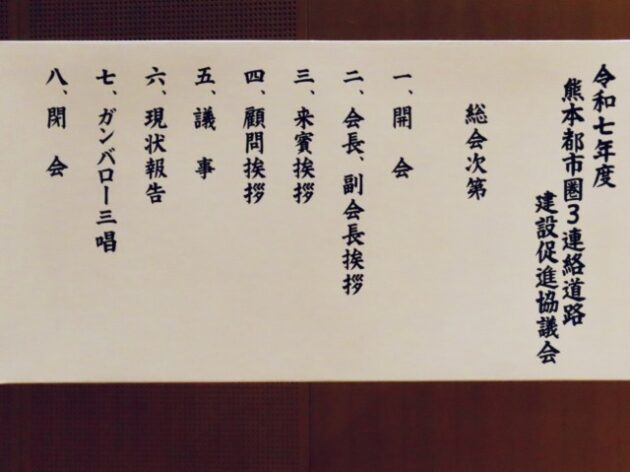 令和七年度
熊本都市圏3連絡道路
建設促進協議会
総会次第
一、開 会
二、会長、副会長挨拶
三、来賓挨拶
四、顧問挨拶
五、議 事
六、現状報告
七、ガンバロー三唱
八、閉 会